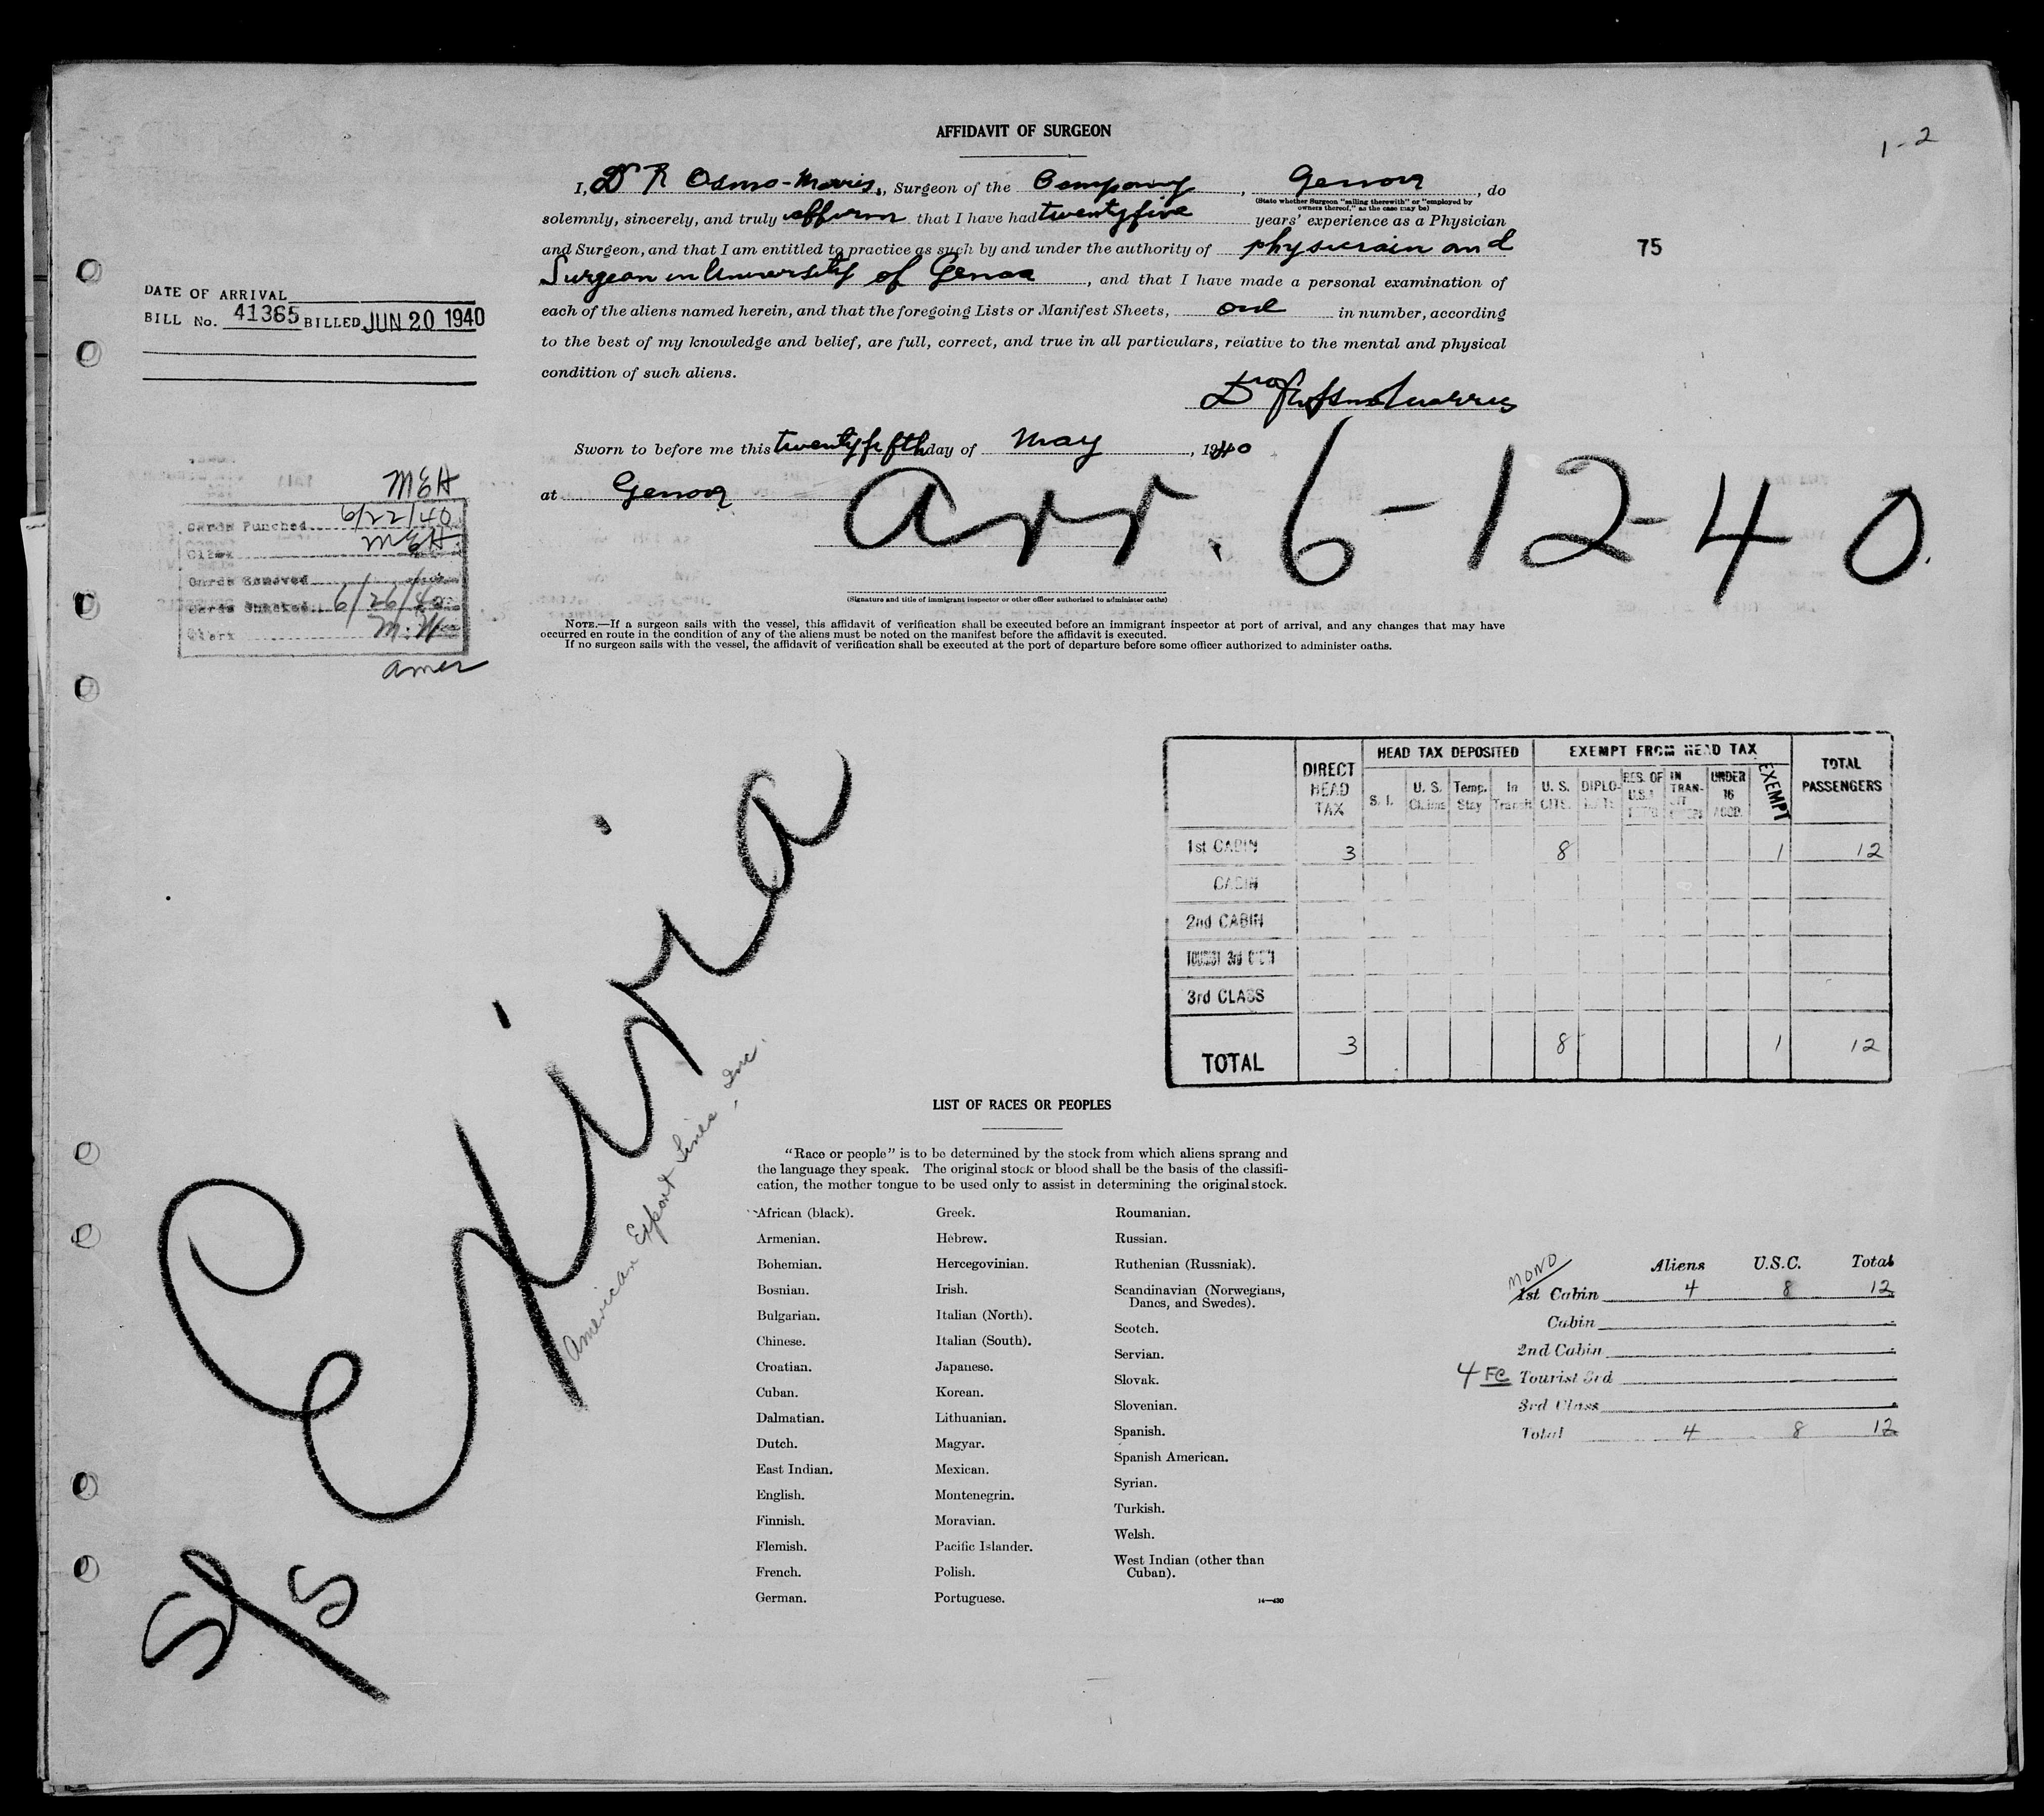 AFFIDAVIT OF SURGEON
1-2
I, Dr R Osmo-Morris, Surgeon of the Company, Genova, do
(State whether Surgeon "sailing therewith" or "employed by
owners thereof," as the case may be)
solemnly, sincerely, and truly affirm that I have had twentyfive years' experience as a Physician
and Surgeon, and that I am entitled to practice as such by and under the authority of physician and
75
Surgeon in University of Genoa, and that I have made a personal examination of
each of the aliens named herein, and that the foregoing Lists or Manifest Sheets, one in number, according
to the best of my knowledge and belief, are full, correct, and true in all particulars, relative to the mental and physical
condition of such aliens.
Sworn to before me this twentyfifth day of May, 1940
at Genova
arr. 6-12-40.
(Signature and title of immigrant inspector or other officer authorized to administer oaths)
NOTE.—If a surgeon sails with the vessel, this affidavit of verification shall be executed before an immigrant inspector at port of arrival, and any changes that may have
occurred en route in the condition of any of the aliens must be noted on the manifest before the affidavit is executed.
If no surgeon sails with the vessel, the affidavit of verification shall be executed at the port of departure before some officer authorized to administer oaths.
DATE OF ARRIVAL
BILL No. 41365 BILLED JUN 20 1940
MEH
Cards Punched 6/22/40
Clerk MEH
Cards Removed
Cards Checked 6/26/40
Clerk
amer
S/S Exiria
American Export Lines, Inc.
DIRECT HEAD TAX
HEAD TAX DEPOSITED
EXEMPT FROM HEAD TAX
TOTAL PASSENGERS
S. I.
U. S. Claims
Temp. Stay
In Transit
U. S. CITS.
DIPLO-MATS
RES. OF U.S.A.
IN TRAN-SIT
UNDER 16 ACCD.
EXEMPT
1st CABIN 3 8 1 12
CABIN
2nd CABIN
TOURIST 3rd CABIN
3rd CLASS
TOTAL 3 8 1 12
LIST OF RACES OR PEOPLES
"Race or people" is to be determined by the stock from which aliens sprang and
the language they speak. The original stock or blood shall be the basis of the classifi-
cation, the mother tongue to be used only to assist in determining the original stock.
African (black).
Armenian.
Bohemian.
Bosnian.
Bulgarian.
Chinese.
Croatian.
Cuban.
Dalmatian.
Dutch.
East Indian.
English.
Finnish.
Flemish.
French.
German.
Greek.
Hebrew.
Hercegovinian.
Irish.
Italian (North).
Italian (South).
Japanese.
Korean.
Lithuanian.
Magyar.
Mexican.
Montenegrin.
Moravian.
Pacific Islander.
Polish.
Portuguese.
Roumanian.
Russian.
Ruthenian (Russniak).
Scandinavian (Norwegians,
Danes, and Swedes).
Scotch.
Servian.
Slovak.
Slovenian.
Spanish.
Spanish American.
Syrian.
Turkish.
Welsh.
West Indian (other than
Cuban).
14—430
Aliens U.S.C. Total
MONO
1st Cabin 4 8 12
Cabin
2nd Cabin
4 FC Tourist 3rd
3rd Class
Total 4 8 12